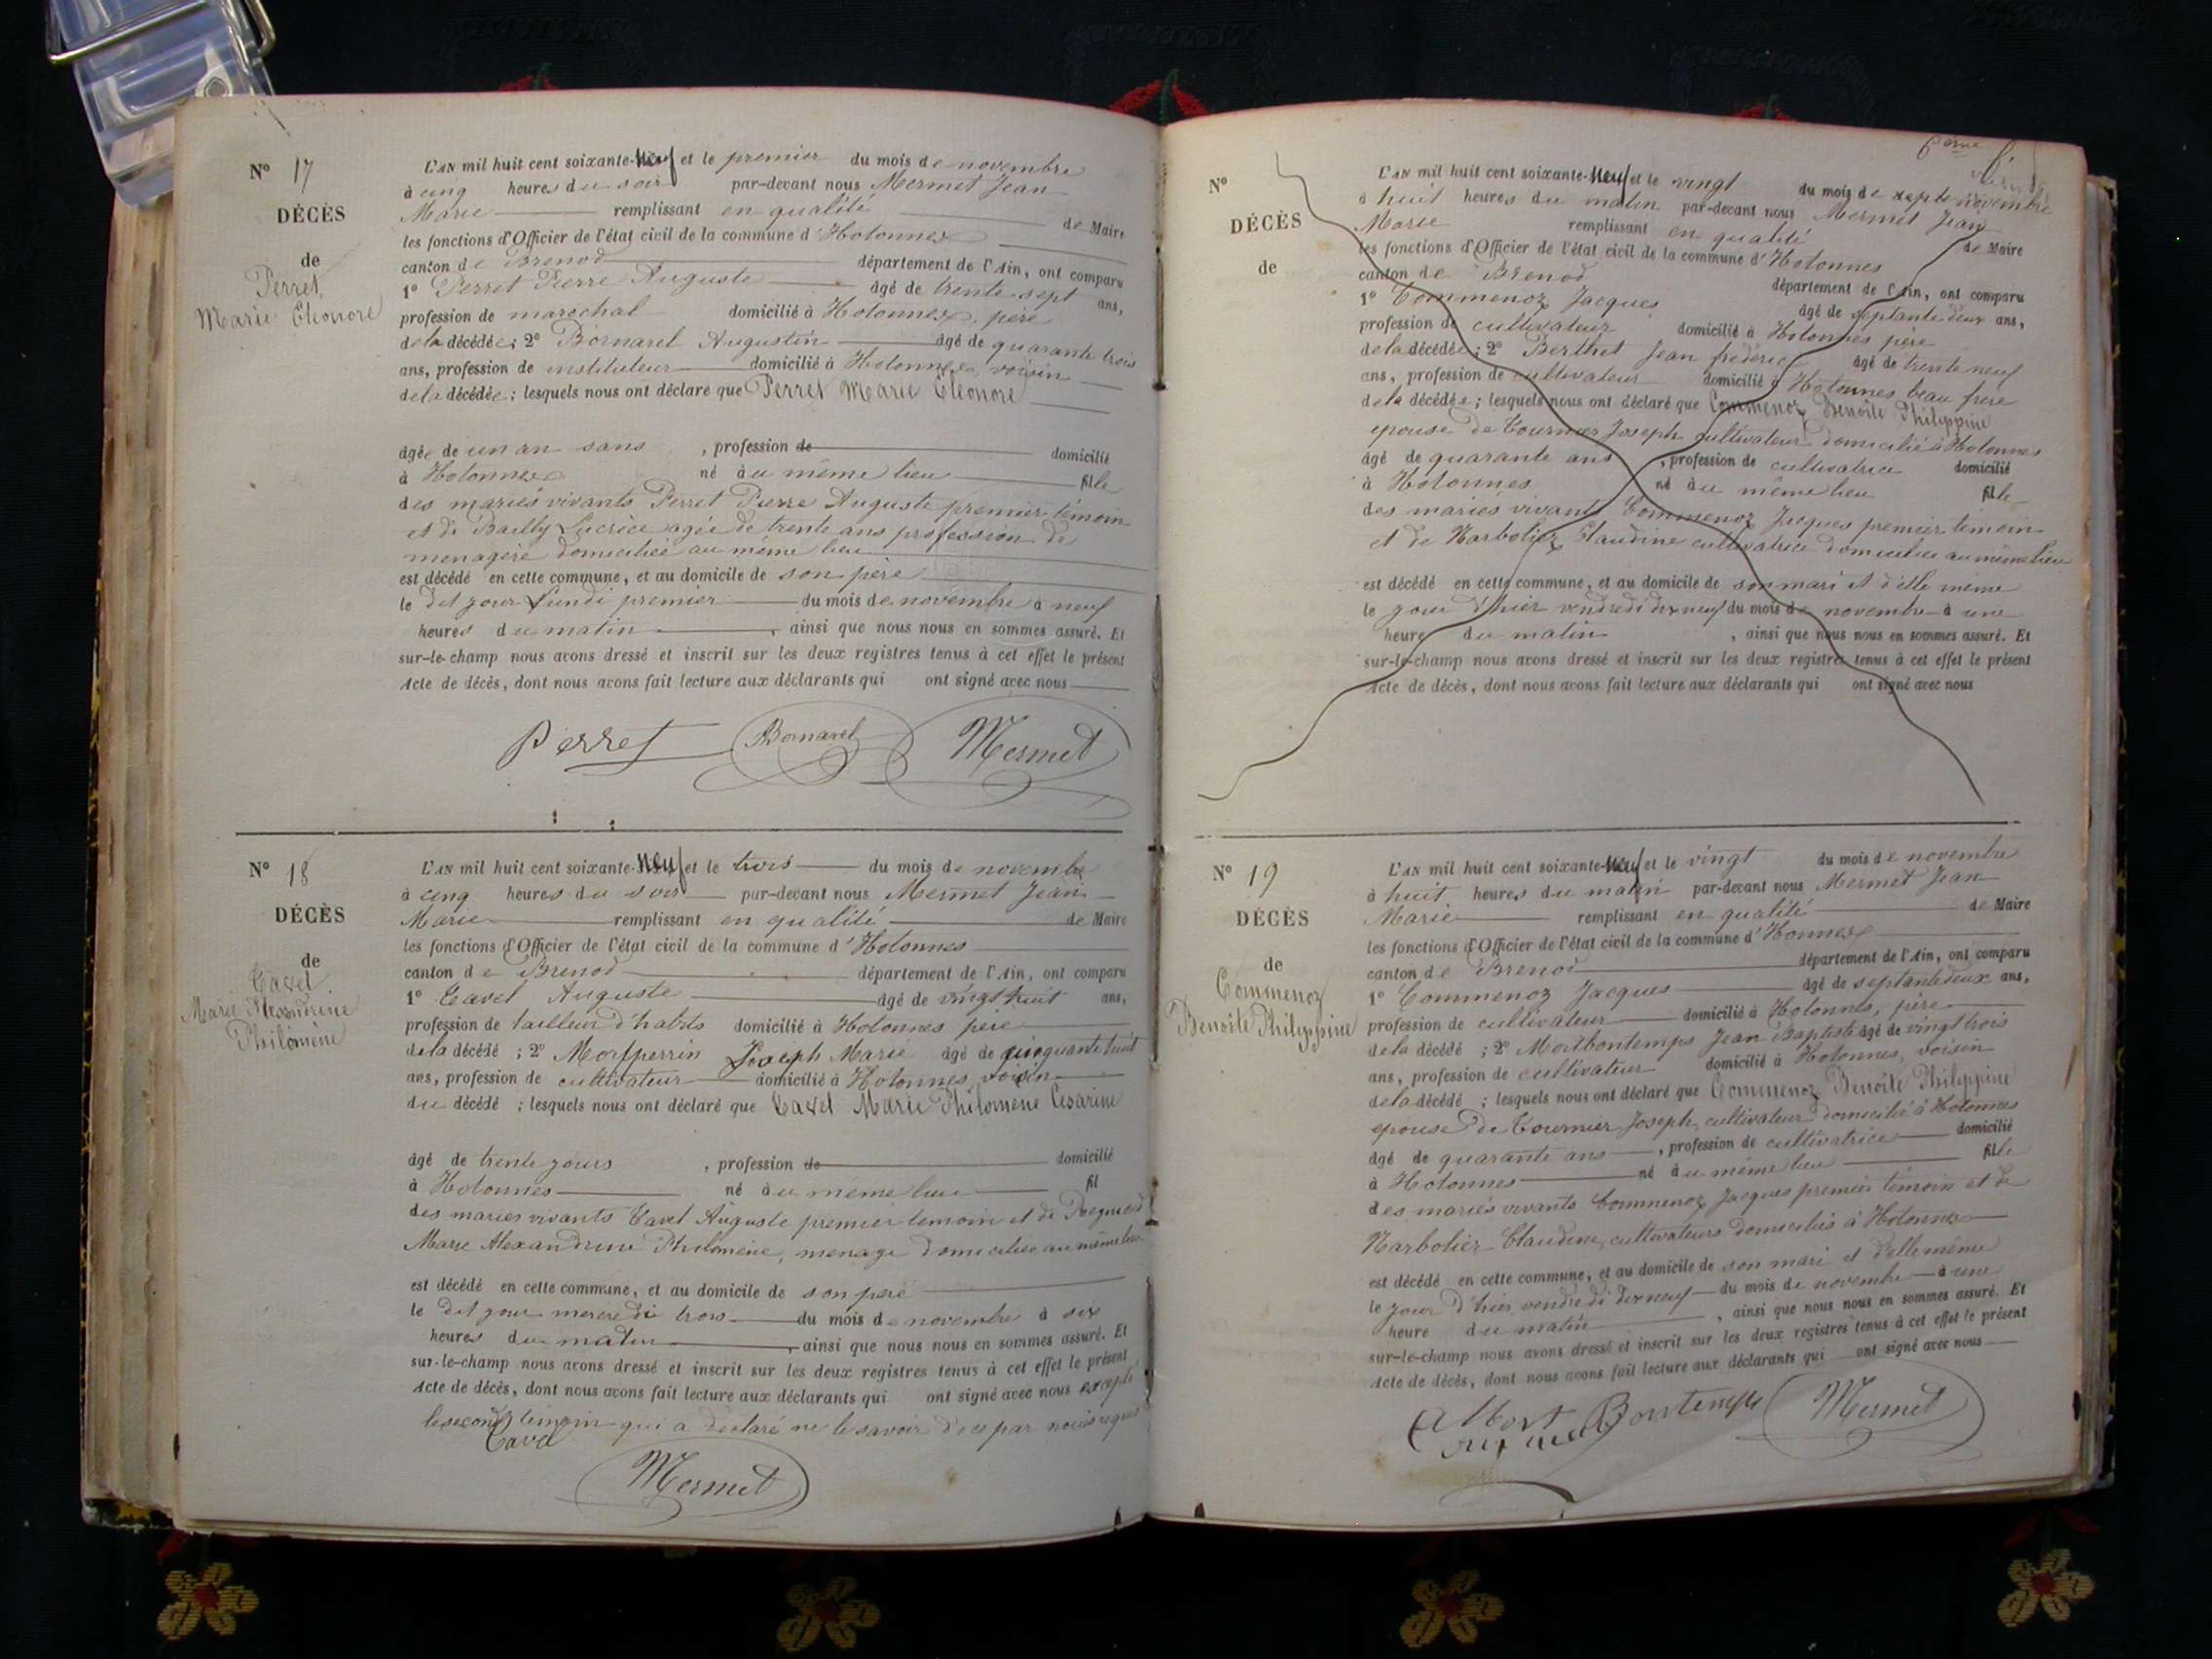 N° 17
DÉCÈS
de
Perret
Marie Éléonore
L'AN mil huit cent soixante-neuf et le premier du mois de novembre
à cinq heures du soir par-devant nous Mermet Jean
Marie remplissant en qualité de Maire
les fonctions d'Officier de l'état civil de la commune d'Hotonnes
canton de Brenod département de l'Ain, ont comparu
1° Perret Pierre Auguste âgé de trente sept ans,
profession de marechal domicilié à Hotonnes, père
de la décédée; 2° Bornarel Augustin âgé de quarante trois
ans, profession de instituteur domicilié à Hotonnes, voisin
de la décédée; lesquels nous ont déclaré que Perret Marie Éléonore
âgée de un an sans , profession de domicilié
à Hotonnes né au même lieu fille
des mariés vivants Perret Pierre Auguste premier témoin
et de Bailly Lucrèce agée de trente ans profession de
menagère domiciliée au même lieu
est décédé en cette commune, et au domicile de son père
le dit jour Lundi premier du mois de novembre à neuf
heures du matin , ainsi que nous nous en sommes assuré. Et
sur-le-champ nous avons dressé et inscrit sur les deux registres tenus à cet effet le présent
Acte de décès, dont nous avons fait lecture aux déclarants qui ont signé avec nous
Perret Bornarel Mermet
N° 18
DÉCÈS
de
Tavel
Marie Alexandrine
Philomène
L'AN mil huit cent soixante-neuf et le trois du mois de novembre
à cinq heures du soir par-devant nous Mermet Jean
Marie remplissant en qualité de Maire
les fonctions d'Officier de l'état civil de la commune d'Hotonnes
canton de Brenod département de l'Ain, ont comparu
1° Tavel Auguste âgé de vingt huit ans,
profession de tailleur d'habits domicilié à Hotonnes père
de la décédé ; 2° Joseph Marie âgé de cinquante huit
ans, profession de cultivateur domicilié à Hotonnes voisin
du décédé ; lesquels nous ont déclaré que Tavel Marie Philomène Césarine
âgé de trente jours , profession de domicilié
à Hotonnes né au même lieu fil
des mariés vivants Tavel Auguste premier temoin et de
Marie Alexandrine Philomène, menage domiciliée au même lieu
est décédé en cette commune, et au domicile de son père
le dit jour mercredi trois du mois de novembre à six
heures du matin , ainsi que nous nous en sommes assuré. Et
sur-le-champ nous avons dressé et inscrit sur les deux registres tenus à cet effet le présent
Acte de décès, dont nous avons fait lecture aux déclarants qui ont signé avec nous excepté
le second témoin qui a déclaré ne le savoir de ce par nous requis
Tavel
Mermet
N°
DÉCÈS
de
L'AN mil huit cent soixante-neuf et le vingt du mois de septe novembre
à huit heures du matin par-devant nous Mermet Jean
Marie remplissant en qualité de Maire
les fonctions d'Officier de l'état civil de la commune d'Hotonnes
canton de Brenod département de l'Ain, ont comparu
1° Commenoz Jacques âgé de septante deux ans,
profession de cultivateur domicilié à Hotonnes père
de la décédée; 2° Berthet Jean frederic âgé de trente neuf
ans, profession de cultivateur domicilié à Hotonnes beau frere
de la décédée; lesquels nous ont déclaré que Commenoz Benoîte Philippine
epouse de Tournier Joseph cultivateur domicilié à Hotonnes
âgé de quarante ans , profession de cultivatrice domicilié
à Hotonnes né au même lieu fille
des mariés vivants Commenoz Jacques premier témoin
et de Narbolier Claudine cultivatrice domiciliée au même lieu
est décédé en cette commune, et au domicile de son mari et d'elle même
le jour d'hier vendredi dix neuf du mois de novembre à une
heure du matin , ainsi que nous nous en sommes assuré. Et
sur-le-champ nous avons dressé et inscrit sur les deux registres tenus à cet effet le présent
Acte de décès, dont nous avons fait lecture aux déclarants qui ont signé avec nous
N° 19
DÉCÈS
de
Commenoz
Benoîte Philippine
L'AN mil huit cent soixante-neuf et le vingt du mois de novembre
à huit heures du matin par-devant nous Mermet Jean
Marie remplissant en qualité de Maire
les fonctions d'Officier de l'état civil de la commune d'Honnes
canton de Brenod département de l'Ain, ont comparu
1° Commenoz Jacques âgé de septante deux ans,
profession de cultivateur domicilié à Hotonnes, père
de la décédé ; 2° Jean Baptiste âgé de vingt trois
ans, profession de cultivateur domicilié à Hotonnes, voisin
de la décédé ; lesquels nous ont déclaré que Commenoz Benoîte Philippine
epouse de Tournier Joseph, cultivateur domicilié à Hotonnes
âgé de quarante ans , profession de cultivatrice domicilié
à Hotonnes né au même lieu fille
des mariés vivants Commenoz Jacques premier témoin et de
Narbolier Claudine, cultivateurs domiciliés à Hotonnes
est décédé en cette commune, et au domicile de son mari et d'elle même
le jour d'hier vendredi dix neuf du mois de novembre à une
heure du matin , ainsi que nous nous en sommes assuré. Et
sur-le-champ nous avons dressé et inscrit sur les deux registres tenus à cet effet le présent
Acte de décès, dont nous avons fait lecture aux déclarants qui ont signé avec nous
Mermet